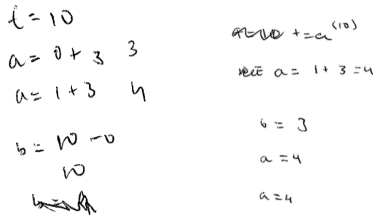 t = 10
a = 0 + 3 3
a = 1 + 3 4
b = 10 - 0
10
t = a (10)
a = 1 + 3 = 4
b = 3
a = 4
a = 4